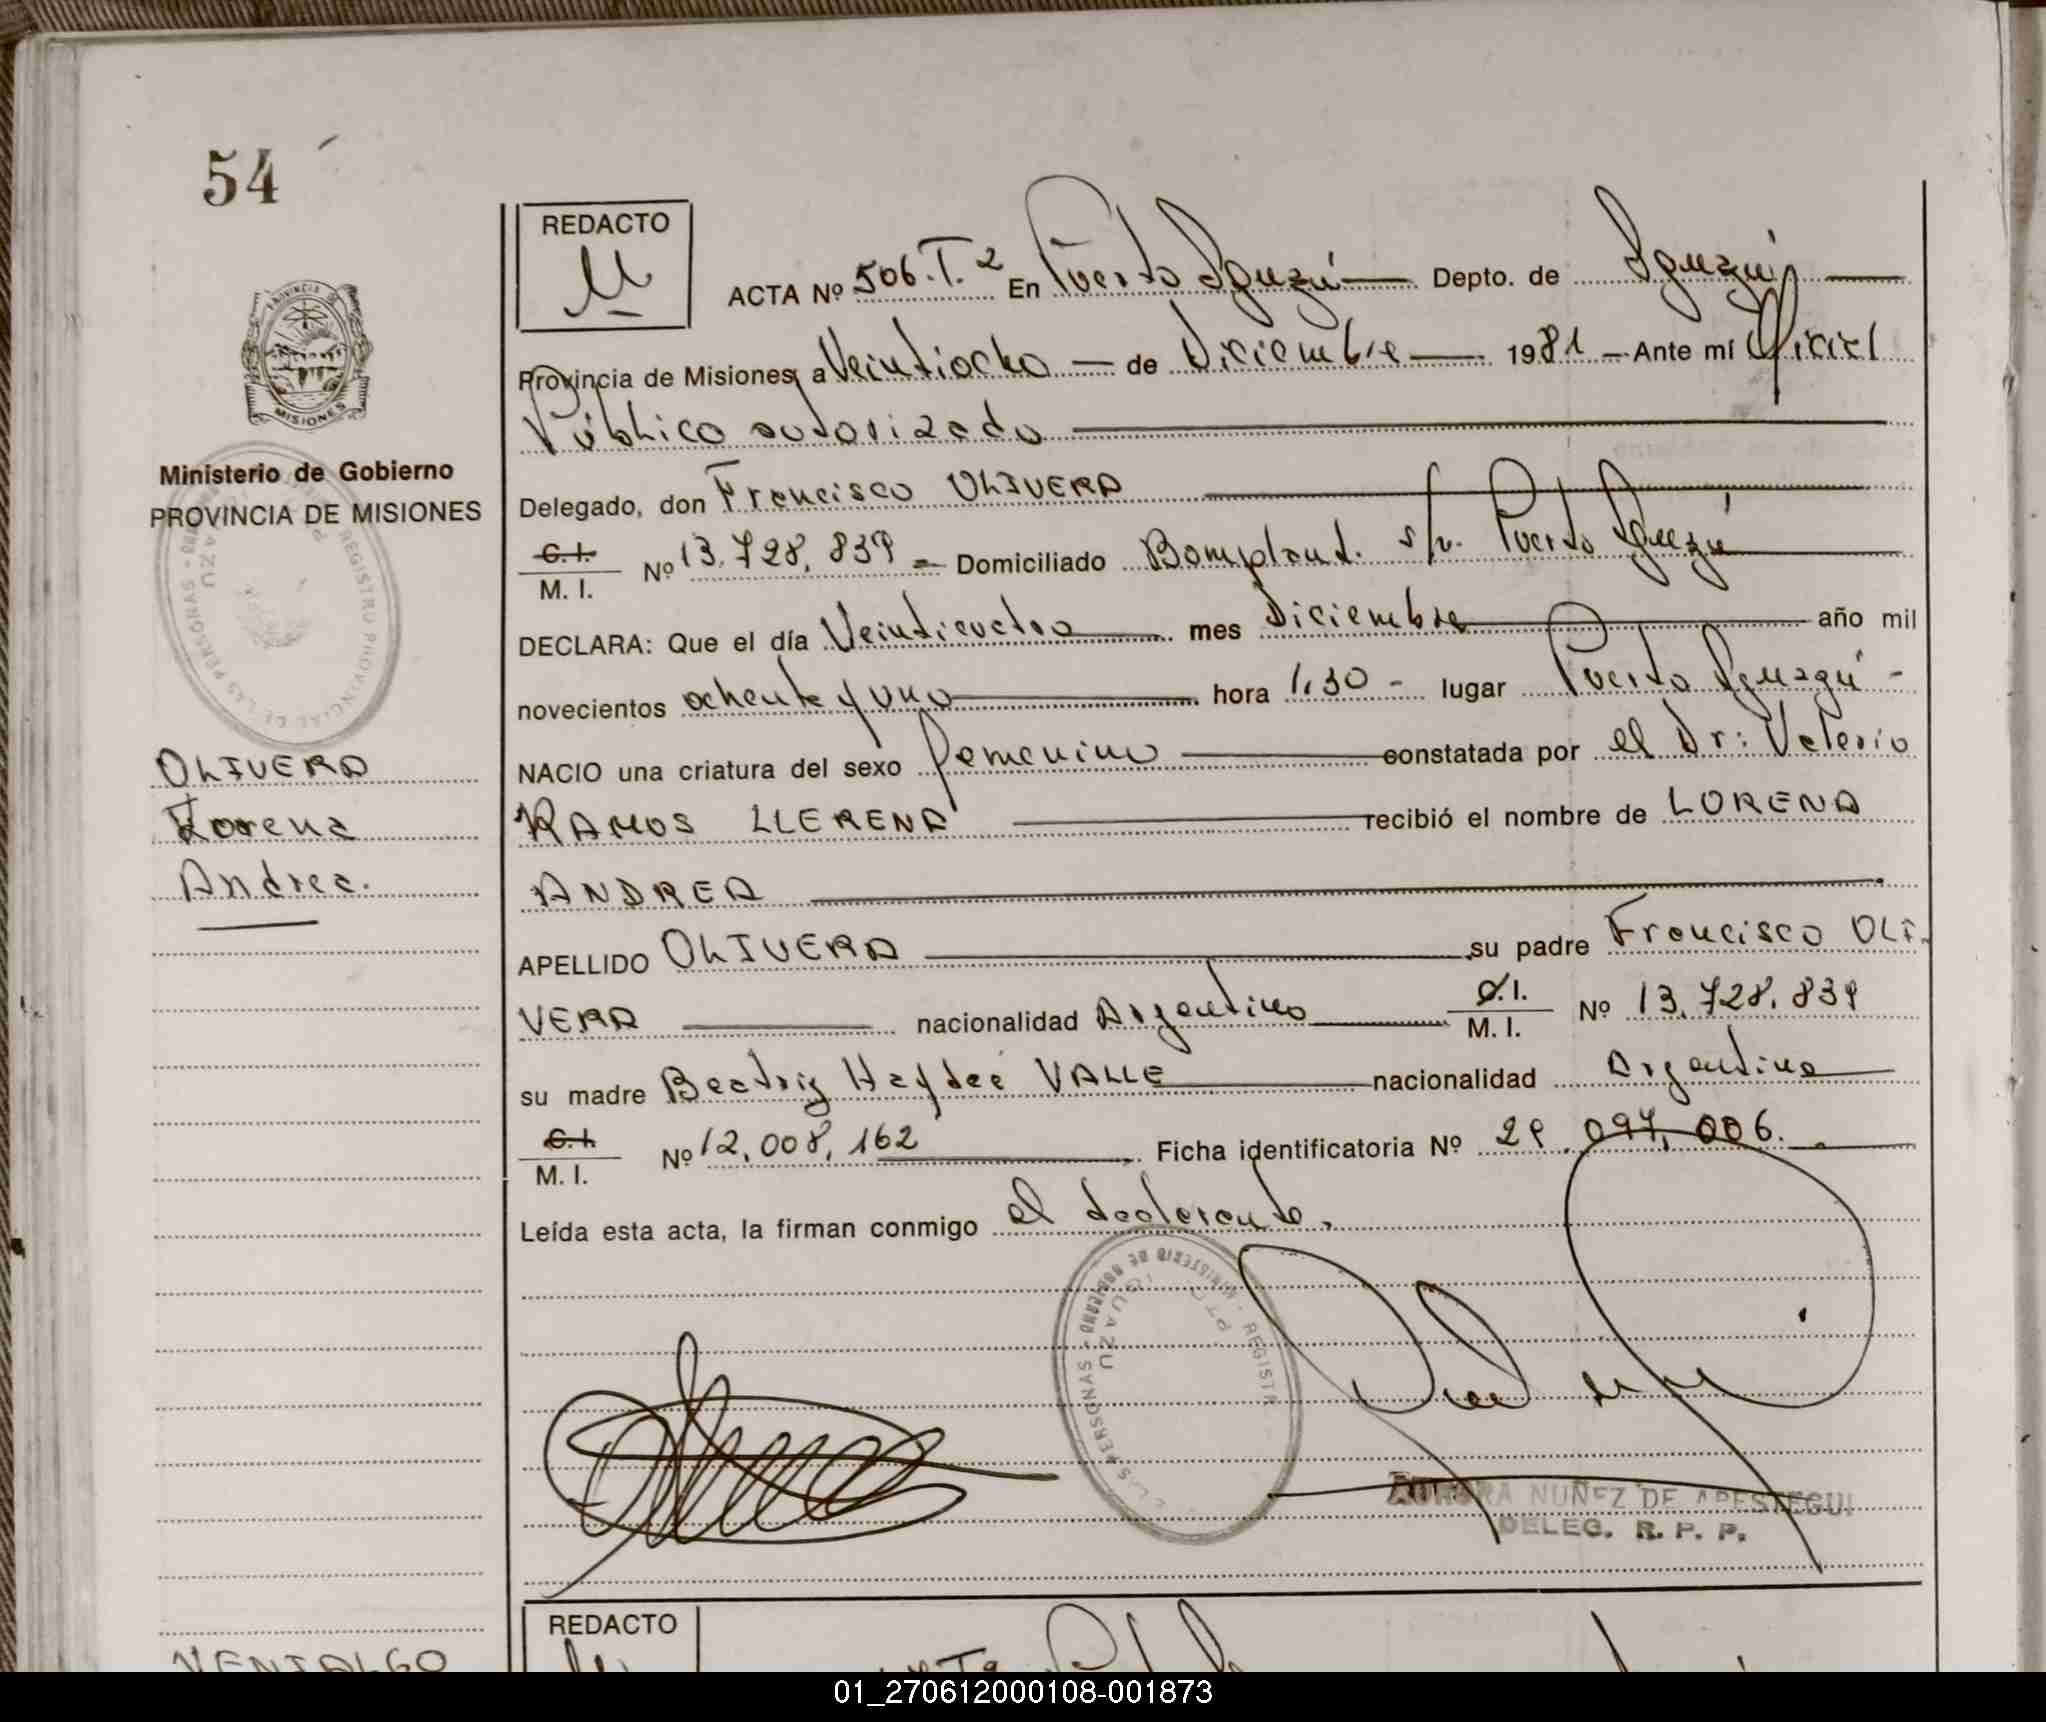 54
REDACTO
ACTA Nº 506.T.2 En Puerto Iguazú Depto. de Iguazú
Provincia de Misiones, a Veintiocho de Diciembre 1981 Ante mí Oficial
Público autorizado
Delegado, don Francisco OLIVERA
C.I. / M. I. Nº 13.728.839 Domiciliado Bompland. s/n. Puerto Iguazú
DECLARA: Que el día Veinticuatro mes Diciembre año mil
novecientos ochenta y uno hora 1,30 - lugar Puerto Iguazú -
NACIO una criatura del sexo femenino constatada por el Dr: Valerio
RAMOS LLERENA recibió el nombre de LORENA
ANDREA
APELLIDO OLIVERA su padre Francisco OLI-
VERA nacionalidad Argentino C.I. / M. I. Nº 13.728.839
su madre Beatriz Haydeé VALLE nacionalidad Argentina
C.I. / M. I. Nº 12.008.162 Ficha identificatoria Nº 29.097.006.
Leída esta acta, la firman conmigo el declarante.
AURORA NUÑEZ DE APESTEGUI
DELEG. R. P. P.
PROVINCIA DE
MISIONES
Ministerio de Gobierno
PROVINCIA DE MISIONES
OLIVERA
Lorena
Andrea.
REDACTO
01_270612000108-001873